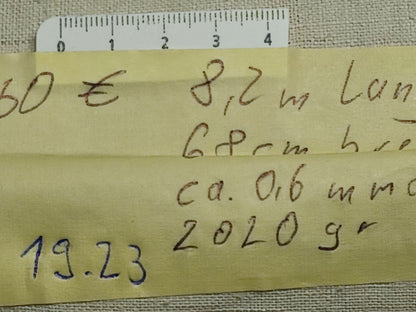 0 1 2 3 4
50 € 8,2 m Lan
68 cm bre
ca. 0,6 mm d
2020 gr
19.23